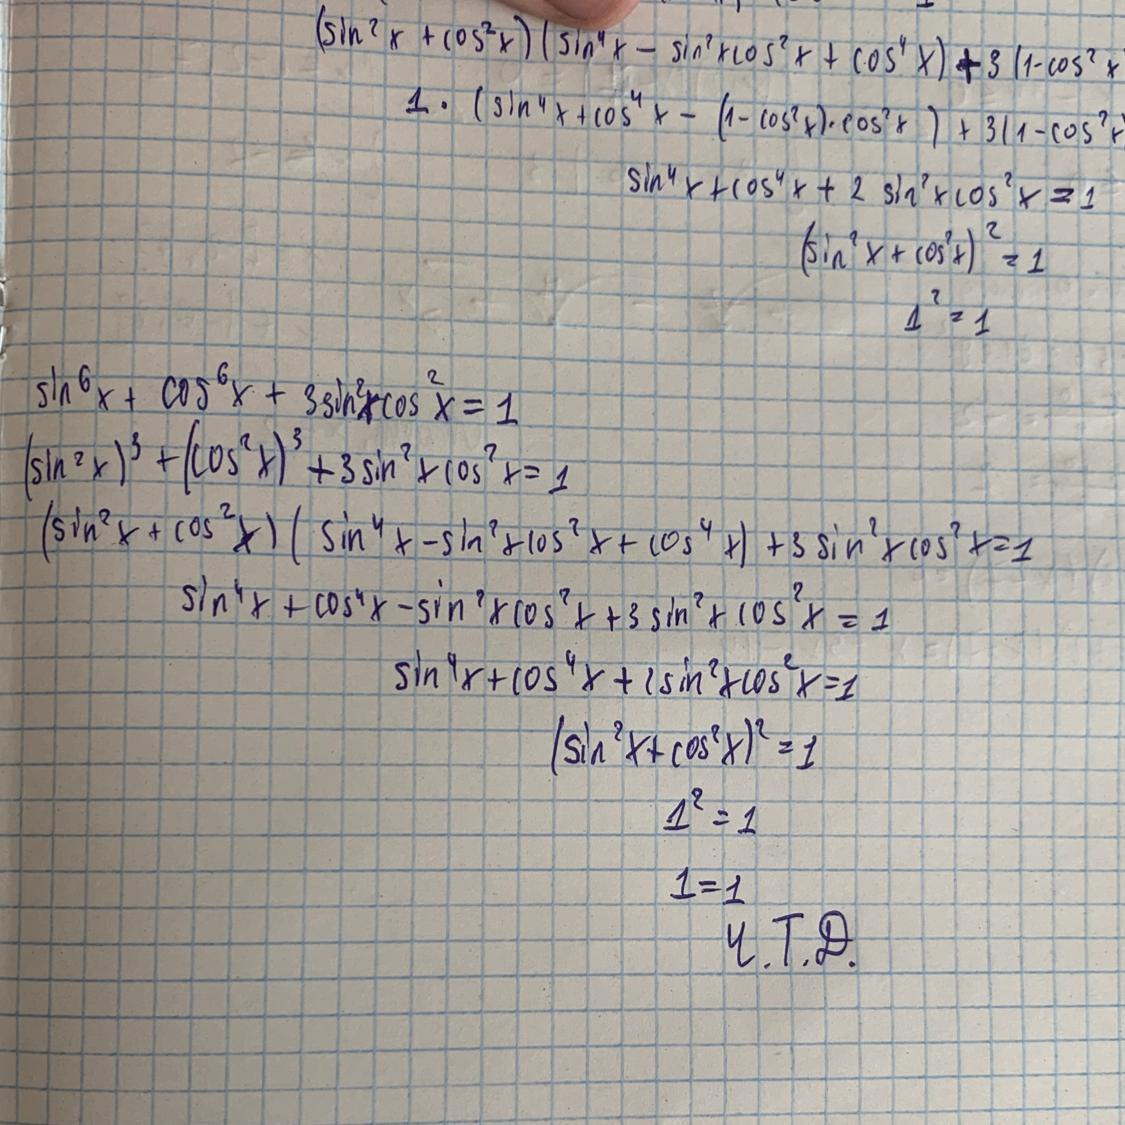 (sin²x + cos²x)(sin⁴x − sin²xcos²x + cos⁴x) + 3(1-cos²x
1 · (sin⁴x + cos⁴x − (1−cos²x)·cos²x) + 3(1−cos²x)
sin⁴x + cos⁴x + 2 sin²xcos²x = 1
(sin²x + cos²x)² = 1
1² = 1
sin⁶x + cos⁶x + 3sin²xcos²x = 1
(sin²x)³ + (cos²x)³ + 3sin²xcos²x = 1
(sin²x + cos²x)(sin⁴x − sin²xcos²x + cos⁴x) + 3sin²xcos²x = 1
sin⁴x + cos⁴x − sin²xcos²x + 3sin²xcos²x = 1
sin⁴x + cos⁴x + 2sin²xcos²x = 1
(sin²x + cos²x)² = 1
1² = 1
1 = 1
Ч.Т.Д.